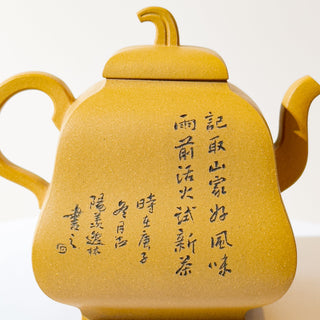 記取山家好風味
雨前活火試新茶
時在庚子
冬月於
陽羨
書之